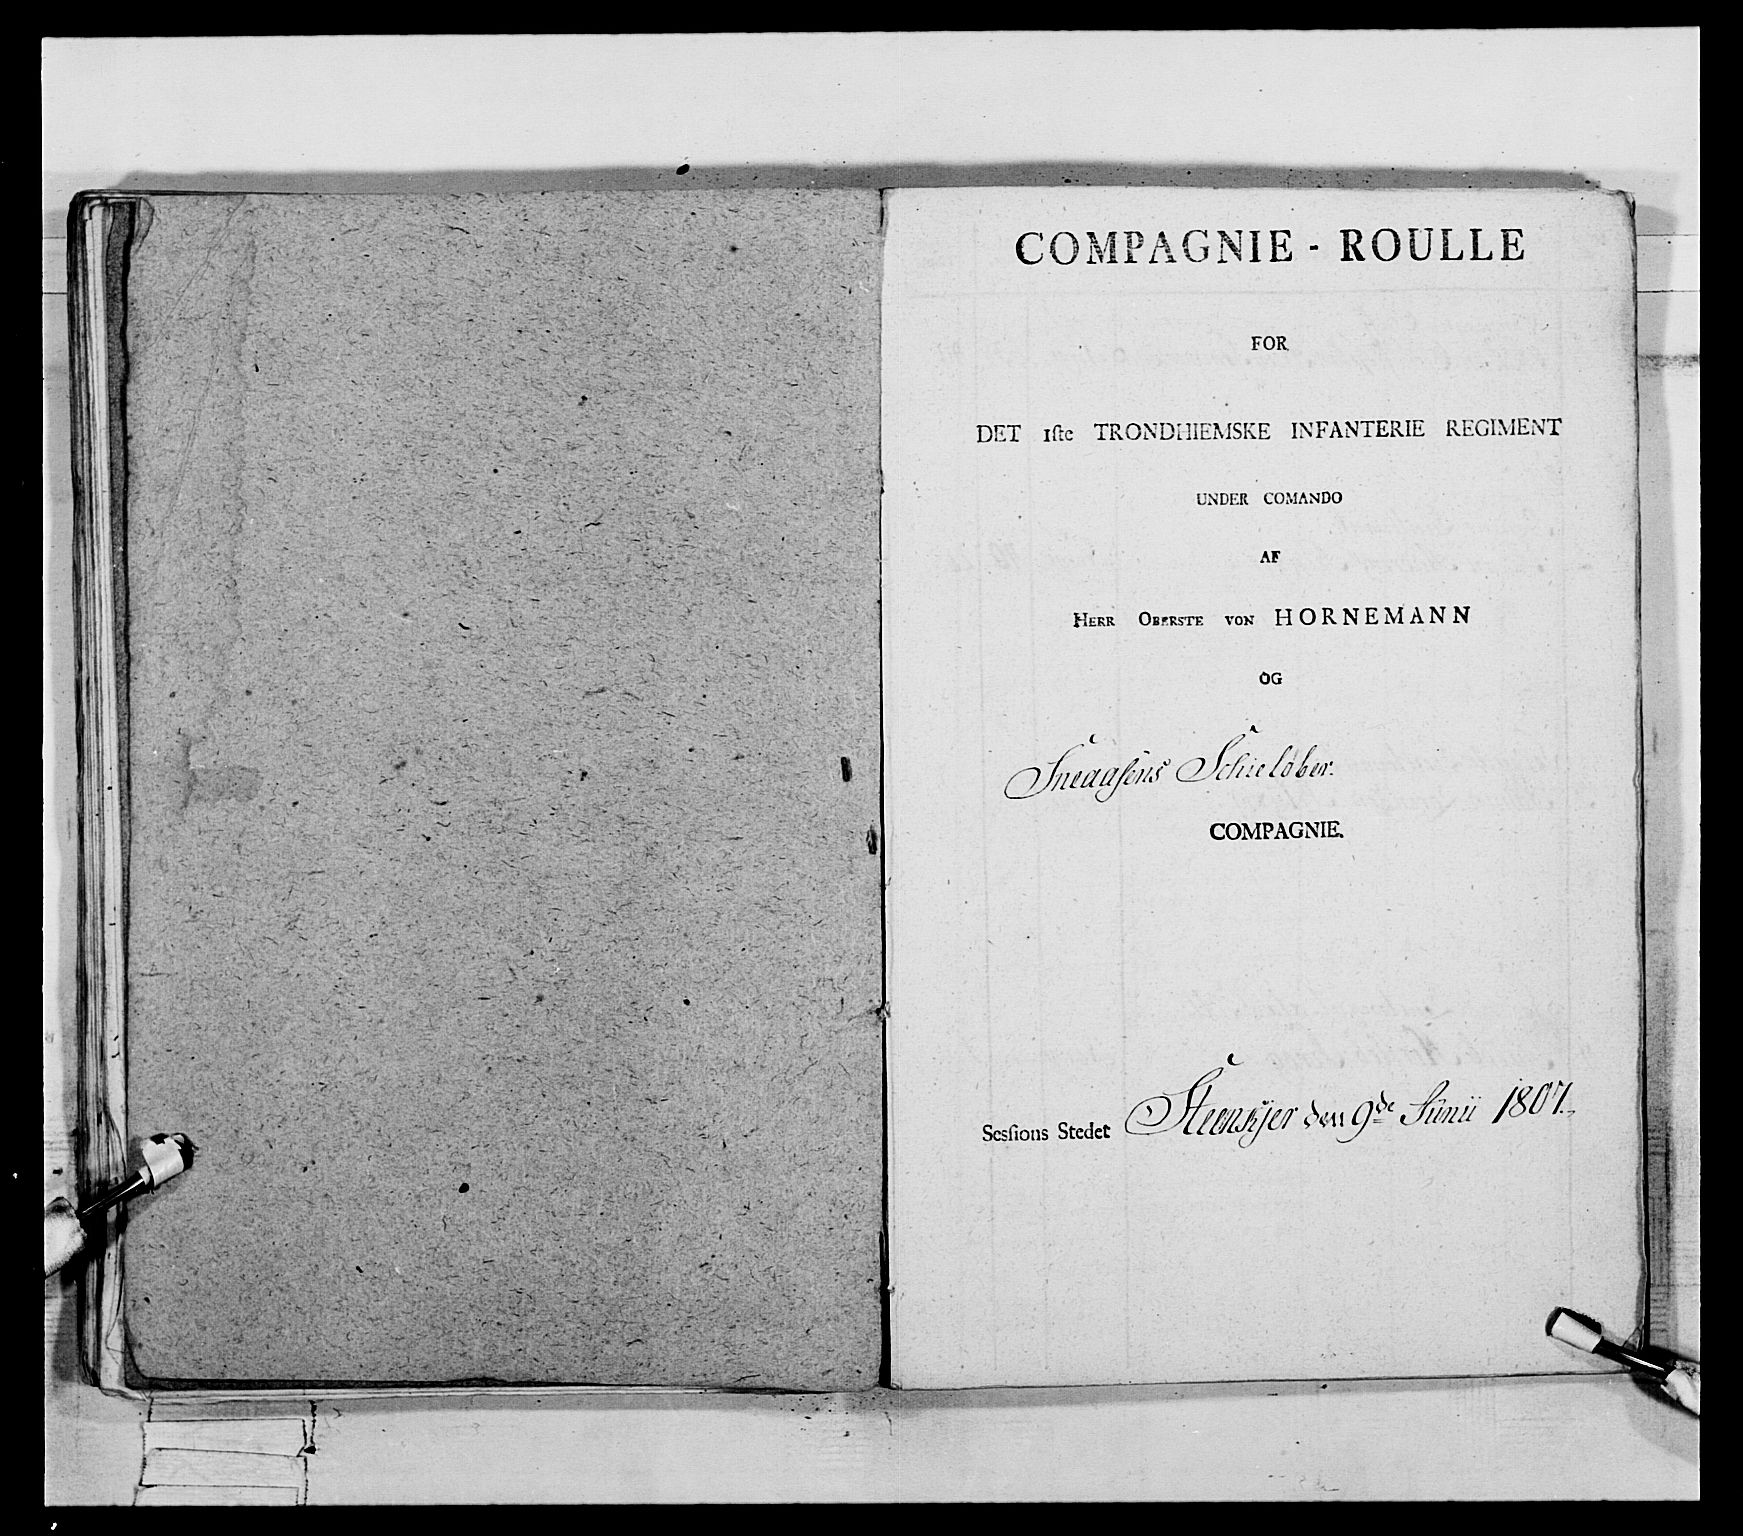 COMPAGNIE - ROULLE
FOR
DET 1ſte TRONDHIEMSKE INFANTERIE REGIMENT
UNDER COMANDO
AF
HERR OBERSTE VON HORNEMANN
OG
Sneaasens Schieløber.
COMPAGNIE.
Sesſions Stedet Steenkjer den 9de Junii 1807.